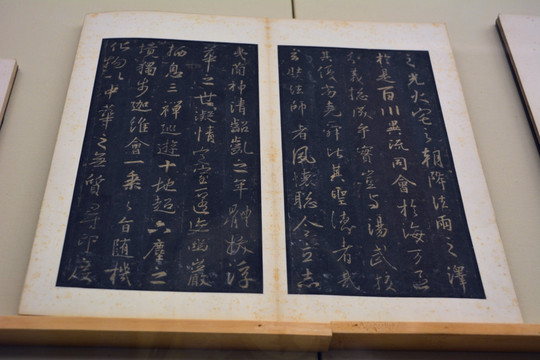 之光火宅之朝降法雨之澤
於是百川異流同會於海萬區
分義揔成乎實豈與湯武校
其優劣堯舜比其聖德者哉
玄奘法師者夙懷聰令立志
夷簡神清齠齔之年體拔浮
華之世凝情定室匿迹幽巖
栖息三禪巡遊十地超六塵之
境獨步迦維會一乘之旨隨機
化物以中華之無質尋印度